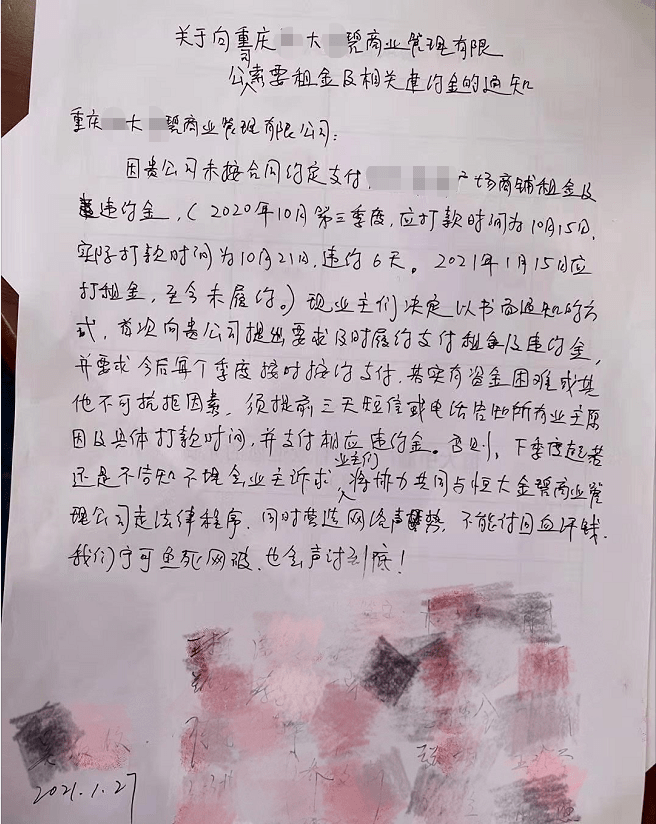 关于向重庆 大 碧商业管理有限
公司索要租金及相关违约金的通知
重庆 大 碧商业管理有限公司:
因贵公司未按合同约定支付 广场商铺租金及
违约金,(2020年10月第三季度,应打款时间为10月15日,
实际打款时间为10月21日,违约6天。2021年1月15日应
打租金,至今未履约。)现业主们决定以书面通知的方
式,首次向贵公司提出要求及时履约支付租金及违约金,
并要求今后每个季度按时按约支付,若实有资金困难或其
他不可抗拒因素,须提前三天短信或电话告知所有业主原
因及具体打款时间,并支付相应违约金。否则,下季度起若
还是不告知不理会业主诉求,业主们将协力共同与恒大金碧商业管
理公司走法律程序,同时营造网络声势,不能付回血汗钱,
我们宁可鱼死网破,也会声讨到底!
2021.1.27